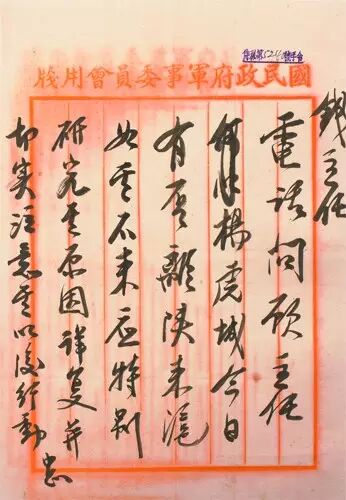 國民政府軍事委員會用牋
錢主任
電話問顧主任
楊虎城今日
有否離陝來滬
如其不來應特別
研究其原因詳复并
切实注意其以後行動